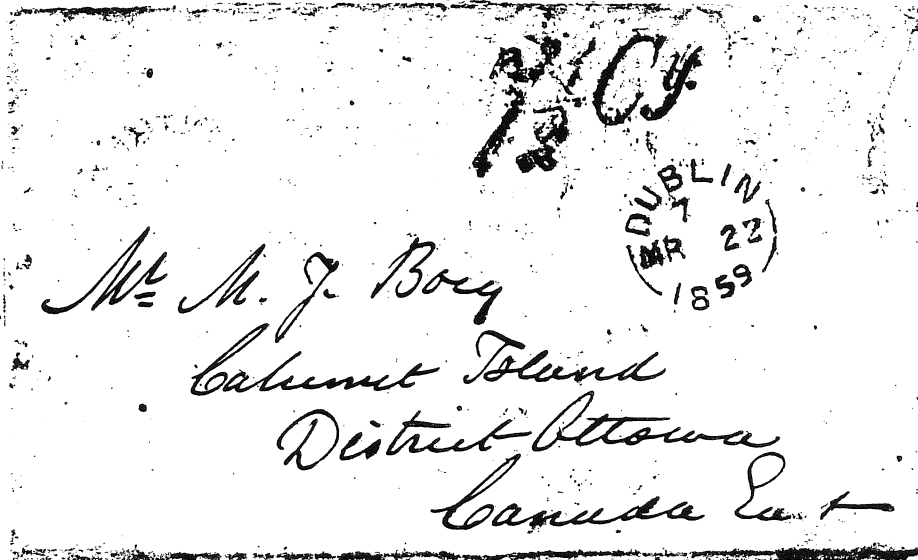 Cy.
DUBLIN
7
MR 22
1859
Mr M. J.
Calumet Island
District Ottowa
Canada East